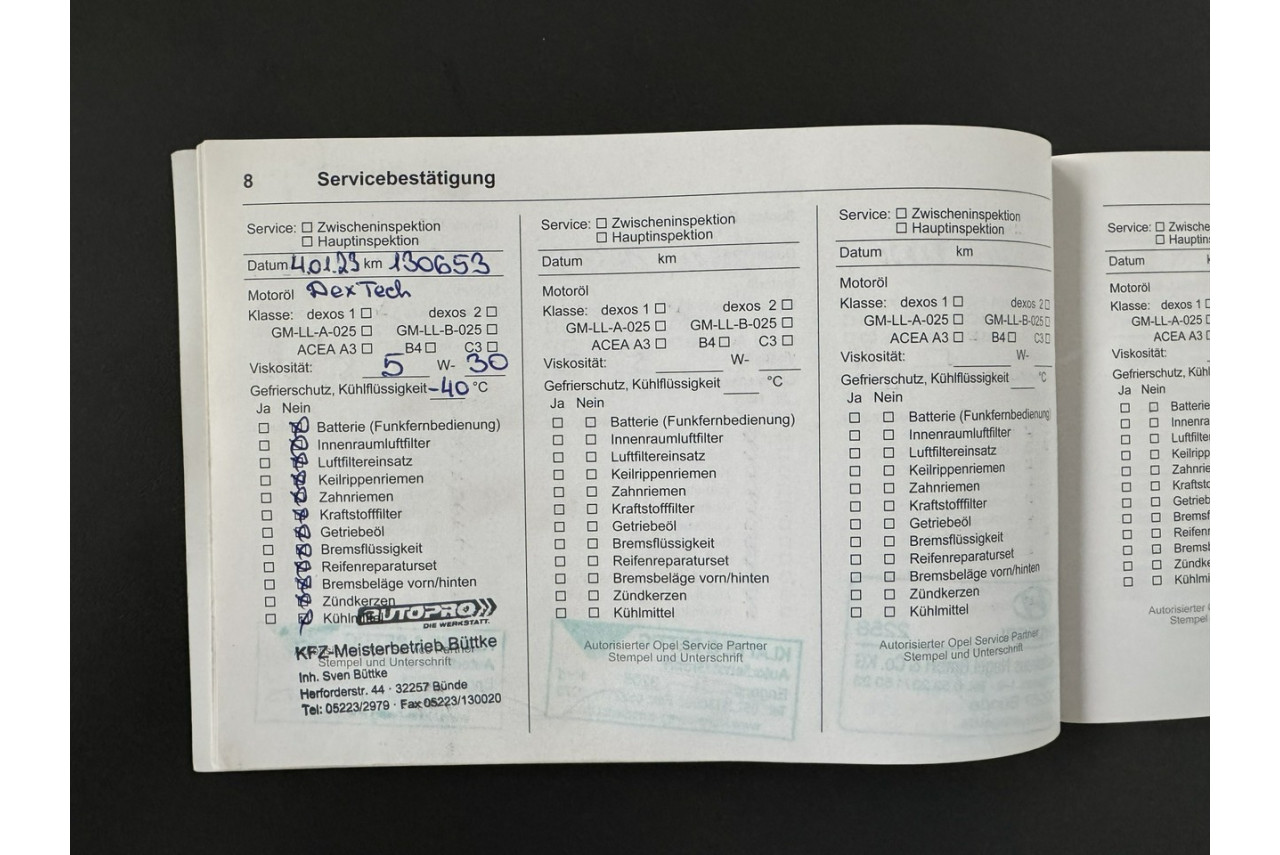 8 Servicebestätigung
Service: ☐ Zwischeninspektion
☐ Hauptinspektion
Datum 4.01.23 km 130653
Motoröl DexTech
Klasse: dexos 1 ☐ dexos 2 ☐
GM-LL-A-025 ☐ GM-LL-B-025 ☐
ACEA A3 ☐ B4 ☐ C3 ☐
Viskosität: 5 W- 30
Gefrierschutz, Kühlflüssigkeit -40 °C
Ja Nein
☐ ☒ Batterie (Funkfernbedienung)
☐ ☒ Innenraumluftfilter
☐ ☒ Luftfiltereinsatz
☐ ☒ Keilrippenriemen
☐ ☒ Zahnriemen
☐ ☒ Kraftstofffilter
☐ ☒ Getriebeöl
☐ ☒ Bremsflüssigkeit
☐ ☒ Reifenreparaturset
☐ ☒ Bremsbeläge vorn/hinten
☐ ☒ Zündkerzen
☐ ☒ Kühlmittel
AUTOPRO
DIE WERKSTATT.
KFZ-Meisterbetrieb Büttke
Stempel und Unterschrift
Inh. Sven Büttke
Herforderstr. 44 · 32257 Bünde
Tel: 05223/2979 · Fax 05223/130020
Service: ☐ Zwischeninspektion
☐ Hauptinspektion
Datum km
Motoröl
Klasse: dexos 1 ☐ dexos 2 ☐
GM-LL-A-025 ☐ GM-LL-B-025 ☐
ACEA A3 ☐ B4 ☐ C3 ☐
Viskosität: W-
Gefrierschutz, Kühlflüssigkeit °C
Ja Nein
☐ ☐ Batterie (Funkfernbedienung)
☐ ☐ Innenraumluftfilter
☐ ☐ Luftfiltereinsatz
☐ ☐ Keilrippenriemen
☐ ☐ Zahnriemen
☐ ☐ Kraftstofffilter
☐ ☐ Getriebeöl
☐ ☐ Bremsflüssigkeit
☐ ☐ Reifenreparaturset
☐ ☐ Bremsbeläge vorn/hinten
☐ ☐ Zündkerzen
☐ ☐ Kühlmittel
Autorisierter Opel Service Partner
Stempel und Unterschrift
Service: ☐ Zwischeninspektion
☐ Hauptinspektion
Datum km
Motoröl
Klasse: dexos 1 ☐ dexos 2 ☐
GM-LL-A-025 ☐ GM-LL-B-025 ☐
ACEA A3 ☐ B4 ☐ C3 ☐
Viskosität: W-
Gefrierschutz, Kühlflüssigkeit °C
Ja Nein
☐ ☐ Batterie (Funkfernbedienung
☐ ☐ Innenraumluftfilter
☐ ☐ Luftfiltereinsatz
☐ ☐ Keilrippenriemen
☐ ☐ Zahnriemen
☐ ☐ Kraftstofffilter
☐ ☐ Getriebeöl
☐ ☐ Bremsflüssigkeit
☐ ☐ Reifenreparaturset
☐ ☐ Bremsbeläge vorn/hinten
☐ ☐ Zündkerzen
☐ ☐ Kühlmittel
Autorisierter Opel Service Partner
Stempel und Unterschrift
Service: ☐ Zwische
☐ Hauptin
Datum
Motoröl
Klasse: dexos 1 ☐
GM-LL-A-025
ACEA A3
Viskosität:
Gefrierschutz, Kühl
Ja Nein
☐ ☐ Batterie
☐ ☐ Innenra
☐ ☐ Luftfilte
☐ ☐ Keilrippe
☐ ☐ Zahnrie
☐ ☐ Kraftsto
☐ ☐ Getrieb
☐ ☐ Bremsf
☐ ☐ Reifenr
☐ ☐ Bremsb
☐ ☐ Zündke
☐ ☐ Kühlmi
Autorisierter
Stempel